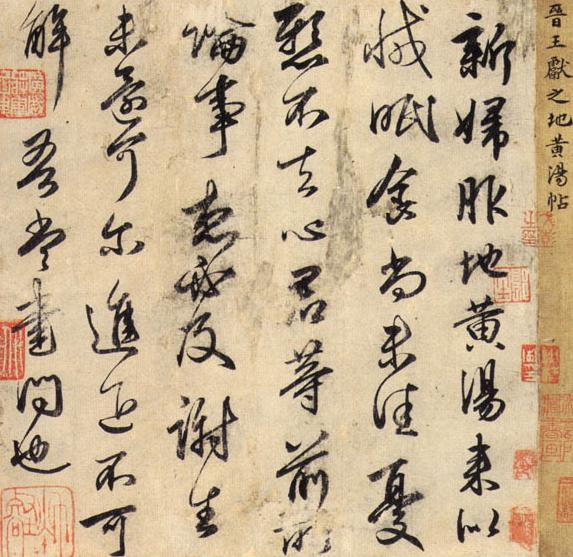 晉王獻之地黄湯帖
新婦服地黄湯来似
減眠食尚未佳憂
懸不去心君等前所
論事想必及謝生
未還可尓進退不可
解吾當書問也